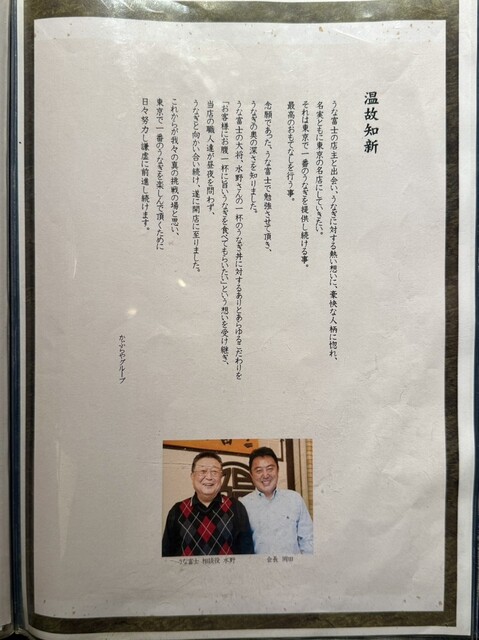 温故知新
うな富士の店主と出会い、うなぎに対する熱い想いに、豪快な人柄に惚れ、
名実ともに東京の名店にしていきたい。
それは東京で一番のうなぎを提供し続ける事。
最高のおもてなしを行う事。
念願であった、うな富士で勉強させて頂き、
うなぎの奥の深さを知りました。
うな富士の大将、水野さんの一杯のうなぎ丼に対するありとあらゆるこだわりを
「お客様にお腹一杯に旨いうなぎを食べてもらいたい」という想いを受け継ぎ、
当店の職人達が昼夜を問わず、
うなぎと向かい合い続け、遂に開店に至りました。
これからが我々の真の挑戦の場と思い、
東京で一番のうなぎを楽しんで頂くために
日々努力し謙虚に前進し続けます。
かぶらやグループ
うな富士 相談役 水野
会長 岡田